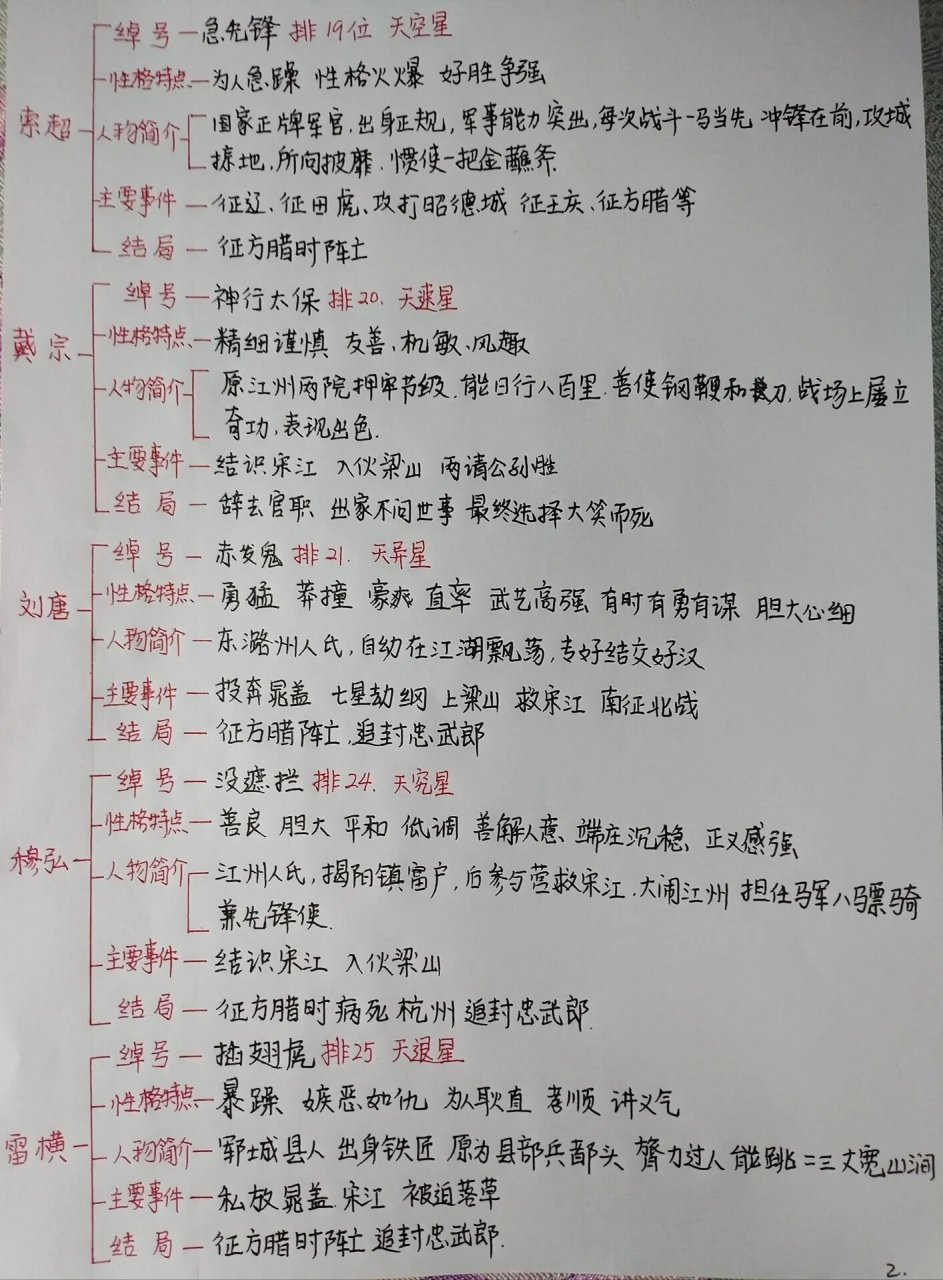 绰号 — 急先锋 排19位 天空星
性格特点 — 为人急躁 性格火火爆 好胜争强
索超
人物简介 国家正牌军官,出身正规,军事能力突出,每次战斗一马当先 冲锋在前,攻城
掠地,所向披靡.惯使一把金蘸斧.
主要事件 — 征辽、征田虎、攻打昭德城 征王庆、征方腊等
结局 — 征方腊时阵亡
绰号 — 神行太保 排20. 天速星
性格特点 — 精细谨慎 友善、机敏、风趣
戴宗
人物简介 原江州两院押牢节级.能日行八百里.善使钢鞭和长刀,战场上屡立
奇功,表现出色.
主要事件 — 结识宋江 入伙梁山 两请公孙胜
结局 — 辞去官职 出家不问世事 最终选择大笑而死
绰号 — 赤发鬼 排21. 天异星
性格特点 — 勇猛 莽撞 豪爽 直率 武艺高强 有时有勇有谋 胆大心细
刘唐
人物简介 — 东潞州人氏,自幼在江湖飘荡,专好结交好汉
主要事件 — 投奔晁盖 七星劫纲 上梁山 救宋江 南征北战
结局 — 征方腊阵亡,追封忠武郎
绰号 — 没遮拦 排24. 天究星
性格特点 — 善良 胆大 平和 低调 善解人意、端庄沉稳、正义感强
穆弘
人物简介 江州人氏,揭阳镇富户,后参与营救宋江.大闹江州 担任马军八骠骑
兼先锋使.
主要事件 — 结识宋江 入伙梁山
结局 — 征方腊时病死杭州 追封忠武郎.
绰号 — 插翅虎 排25. 天退星
性格特点 — 暴躁 嫉恶如仇 为人耿直 孝顺 讲义气
雷横
人物简介 — 郓城县人 出身铁匠 原为县部兵都头 膂力过人 能跳二三丈宽山涧
主要事件 — 私放晁盖.宋江 被迫落草
结局 — 征方腊时阵亡 追封忠武郎.
2.